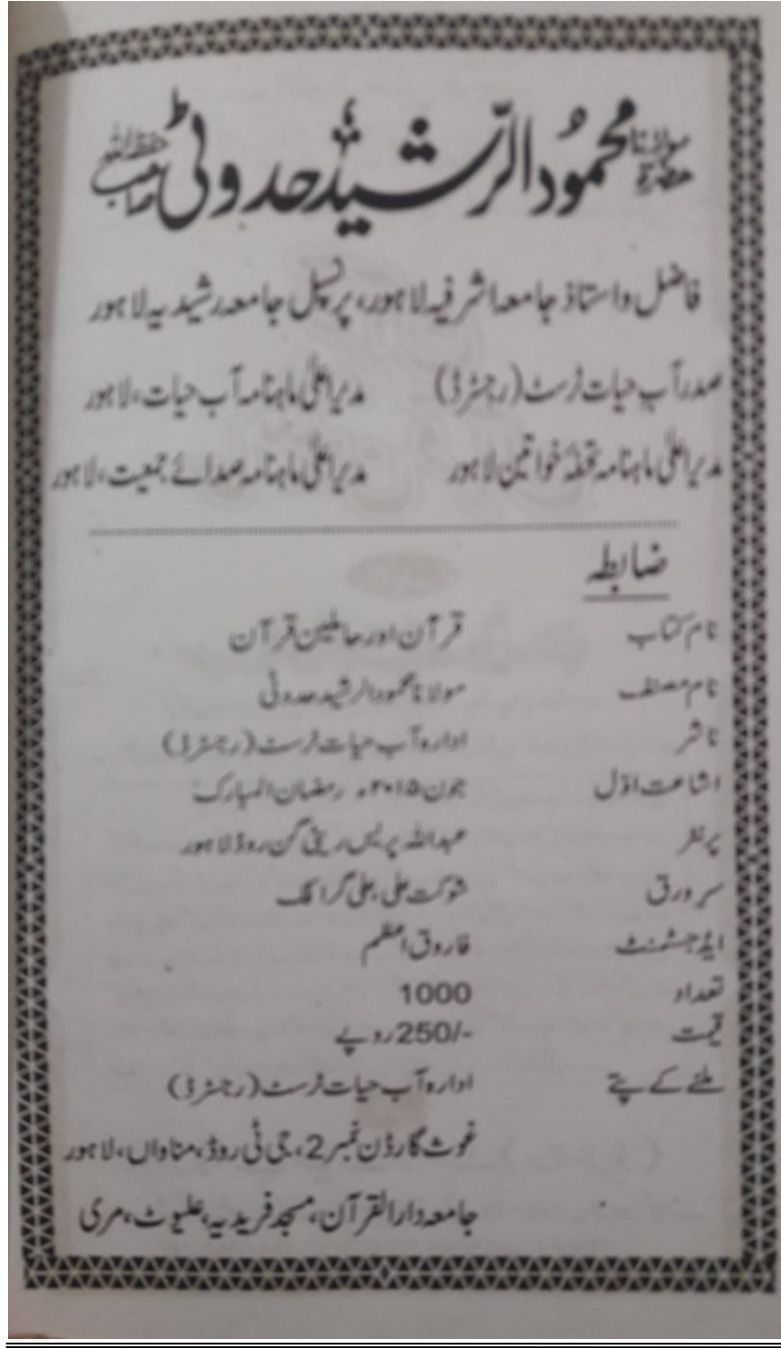 حضرت مولانا محمود الرشید حدوٹی صاحب حفظہ اللہ
فاضل و استاذ جامعہ اشرفیہ لاہور، پرنسپل جامعہ رشیدیہ لاہور
صدر آبِ حیات ٹرسٹ (رجسٹرڈ) مدیر اعلیٰ ماہنامہ آب حیات، لاہور
مدیر اعلیٰ ماہنامہ تحفۂ خواتین لاہور مدیر اعلیٰ ماہنامہ صدائے جمعیت، لاہور
ضابطہ
نام کتاب قرآن اور حاملین قرآن
نام مصنف مولانا محمود الرشید حدوٹی
ناشر ادارہ آب حیات ٹرسٹ (رجسٹرڈ)
اشاعت اوّل جون ۲۰۱۵ء رمضان المبارک
پرنٹر عبداللہ پریس ریٹی گن روڈ لاہور
سرورق شوکت علی، علی گرافک
ایڈجسٹمنٹ فاروق اعظم
تعداد 1000
قیمت 250/- روپے
ملنے کے پتے ادارہ آب حیات ٹرسٹ (رجسٹرڈ)
غوث گارڈن نمبر 2، جی ٹی روڈ، مناواں، لاہور
جامعہ دار القرآن، مسجد فریدیہ، علیوٹ، مری